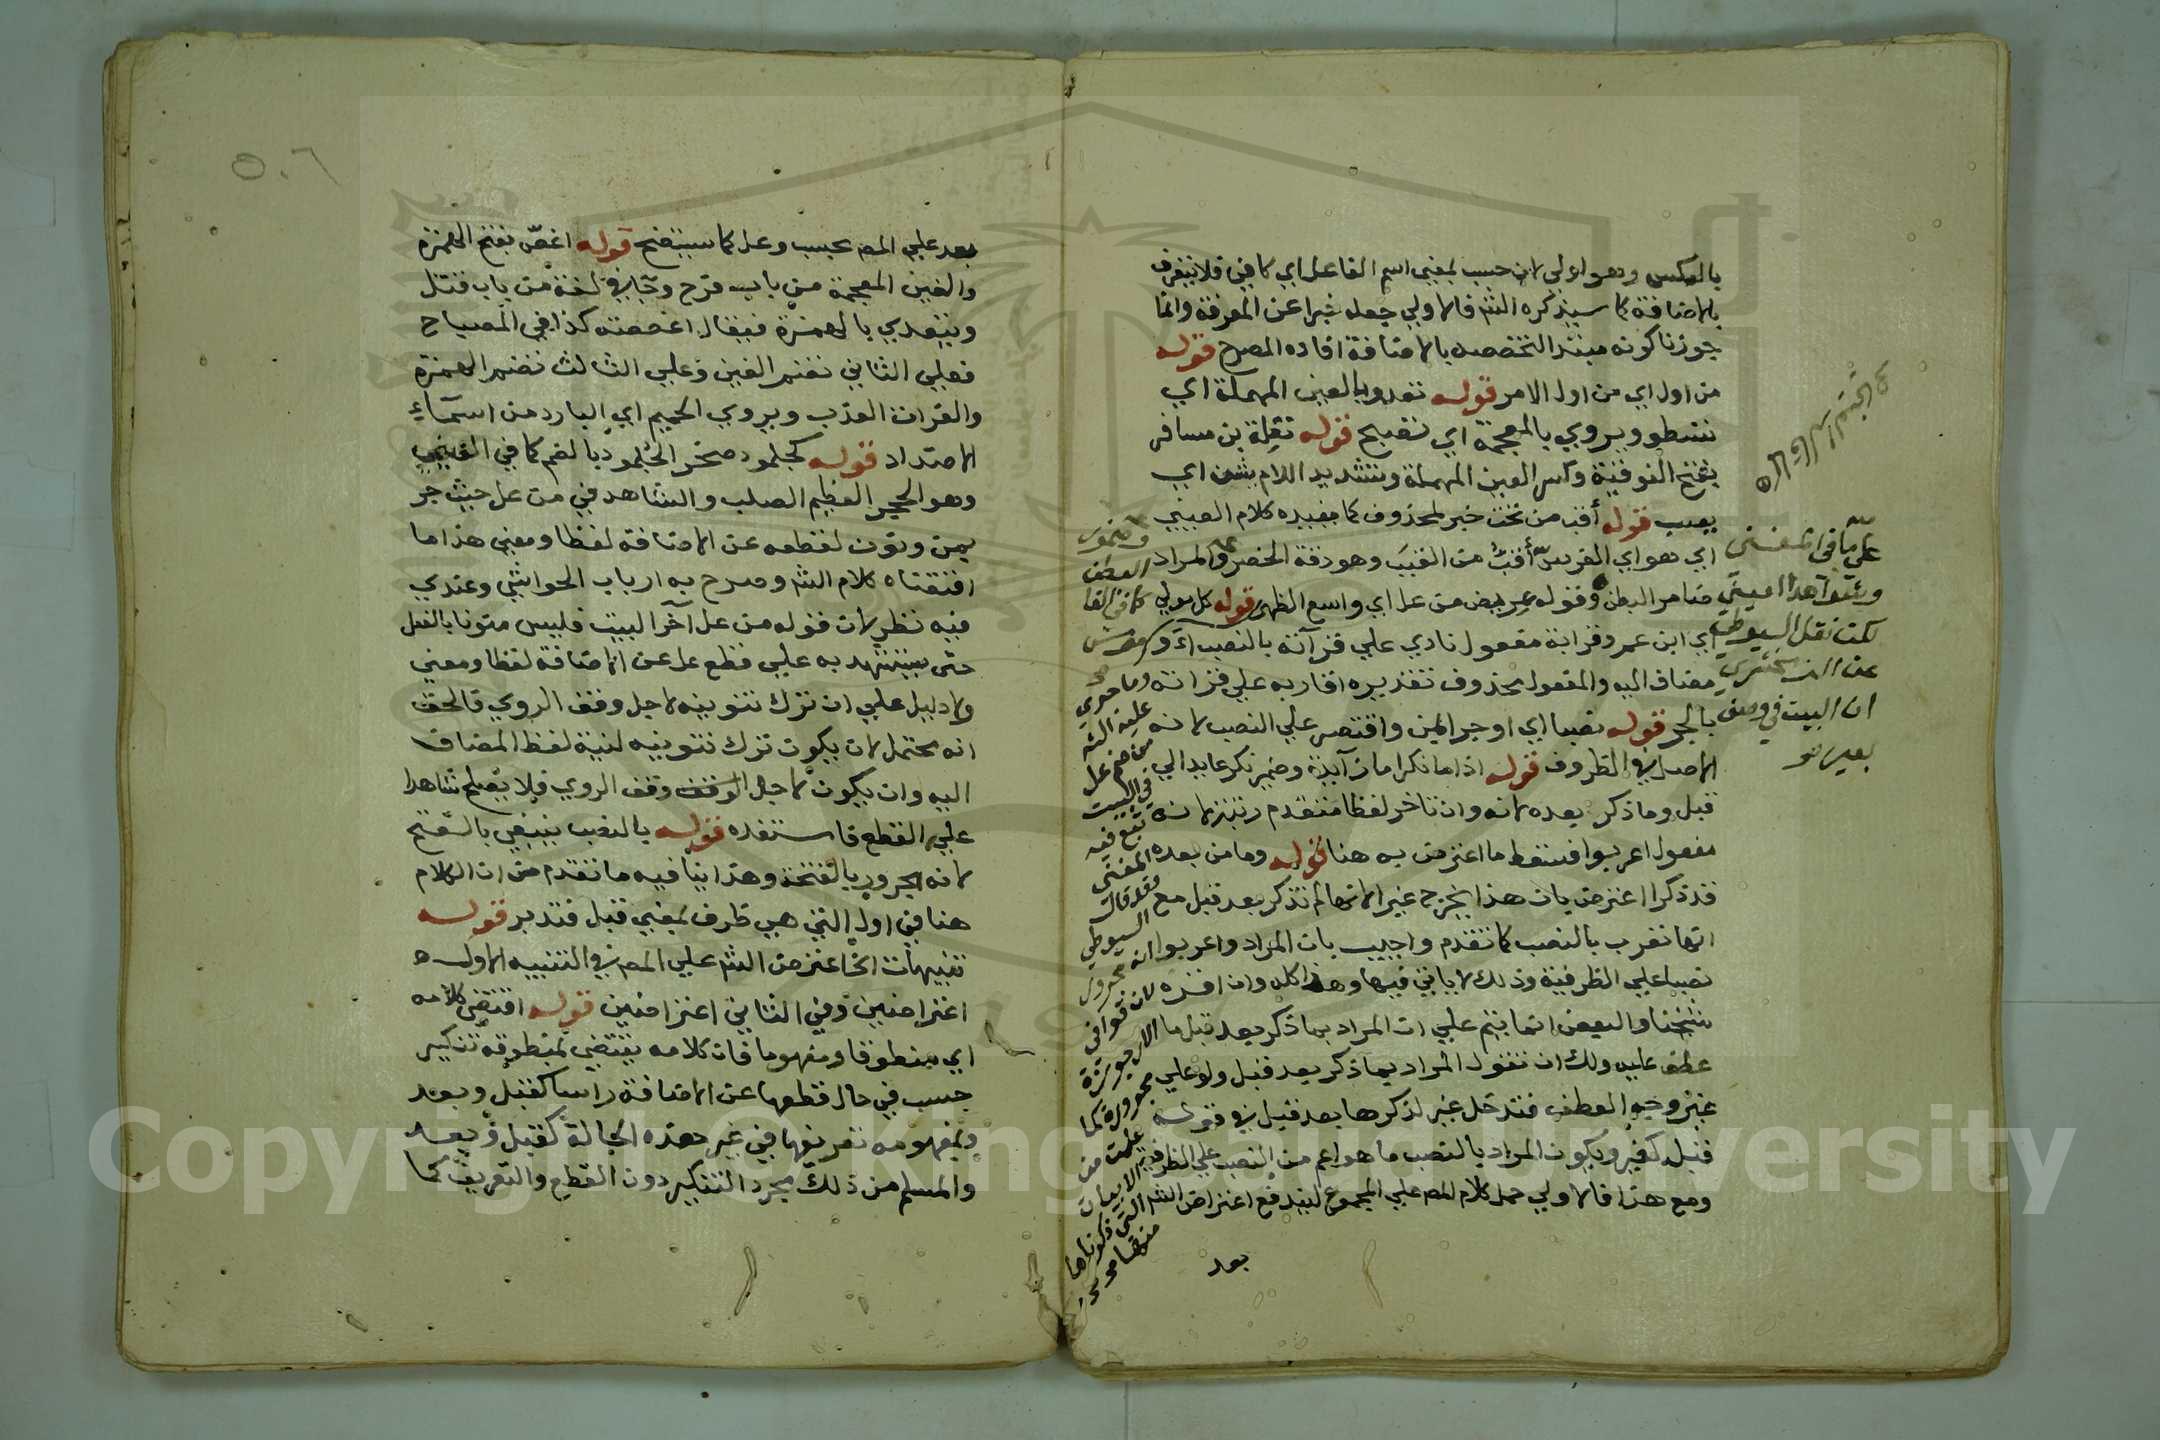 بالعكس وهو اولى لان حسب بمعنى اسم الفاعل اي كافي فلا يتعرف
بالاضافة كما سيذكره الشم فالاولى جعله خبرا عن المعرفة وانما
جوزنا كونه مبتدا لتخصصه بالاضافة افاده المصرح قوله
من اول اي من اول الامر قوله تعدو بالعين المهملة اي
تسطو ويروي بالمعجمة اي تصبح قوله تعلة بن مسافر
بفتح الفوقية وكسر العين المهملة وتشديد اللام يشن اي
يعيب قوله أقب من تحت خبر لمحذوف كما يفيده كلام العيني
اي هو اي الفرس أقب من القبب وهو دقة الخصر والمراد
ضامر البطن وقوله عريض من عل اي واسع الظهر قوله كل مولى
اي ابن عم وقرابة مفعول نادي علي قرآته بالنصب
مضاف اليه والمفعول محذوف تقديره اقاربه علي قرآته
بالجر قوله نصبا اي او جرا بمن واقتصر علي النصب لانه
الاصل في الظروف قوله اذا ما نكرا ما زآيدة وضمير نكر عايد الي
قبل وما ذكر بعده لانه وان تاخر لفظا متقدم رتبة لانه
مفعول اعربوا فسقط ما اعترض به هنا قوله وما من بعده
قد ذكرا اعترض بان هذا يخرج غير لانها لم تذكر بعد قبل مع
انها تعرب بالنصب كما تقدم واجيب بان المراد واعربوا
نصبا علي الظرفية وذلك لا ياتي فيها وهذا كله وان اقره
شيخنا والبعض انما يتم علي ان المراد بما ذكر بعد قبل ما
عطف عليه ولك ان تقول المراد بما ذكر بعد قبل ولو علي
غير وجه العطف فتدخل غير لذكرها بعد قبل في قوله
قبل كغير ويكون المراد بالنصب ما هو اعم من النصب علي الظرفية
ومع هذا فالاولي حمل كلام المص علي المجموع ليندفع اعتراض الشم
بعد
علي ما في المغني
لكن نقل السيوطي
عن الزمخشري
ان البيت في وصف
بعير
٥٠٦
بعد علي المص بحسب وعل كما سيتضح قوله اغص بفتح الهمزة
والغين المعجمة من باب فرح وجآ في لغة من باب قتل
ويتعدي بالهمزة فيقال اغصصته كذا في المصباح
فعلي الثاني تضم الغين وعلي الثالث تضم الهمزة
والفرات العذب ويروي الحميم اي البارد من اسمآء
الاضداد قوله كجلمود صخر الجلمود بالضم كما في العيني
وهو الحجر العظيم الصلب والشاهد في من عل حيث جر
بمن ونون لقطعه عن الاضافة لفظا ومعني هذا ما
اقتضاه كلام الشم وصرح به ارباب الحواشي وعندي
فيه نظر لان قوله من عل آخر البيت فليس منونا بالفعل
حتى يستشهد به علي قطع عل عن الاضافة لفظا ومعني
ولا دليل علي ان ترك تنوينه لاجل وقف الروي فالحق
انه محتمل لان يكون ترك تنوينه لنية لفظ المضاف
اليه وان يكون لاجل الوقف وقف الروي فلا يصلح شاهدا
علي القطع فاستفده قوله بالنصب ينبغي بالفتح
لانه المجرور بالفتحة وهذا ينافيه ما تقدم من ان الكلام
هنا في اول التي هي ظرف بمعني قبل فتدبر قوله
تنبيهات الخ اعترض الشم علي المص في التنبيه الاول
اعتراضين وفي الثاني اعتراضين قوله اقتضى كلامه
اي منطوقا ومفهوما فان كلامه يقتضي بمنطوقه تنكير
حسب في حال قطعها عن الاضافة راسا كقبل وبعد
وبمفهومه تعريفها في غير هذه الحالة كقبل وبعد
والمسلم من ذلك مجرد التنكير دون القطع والتعريف كما
Copyright © King Saud University